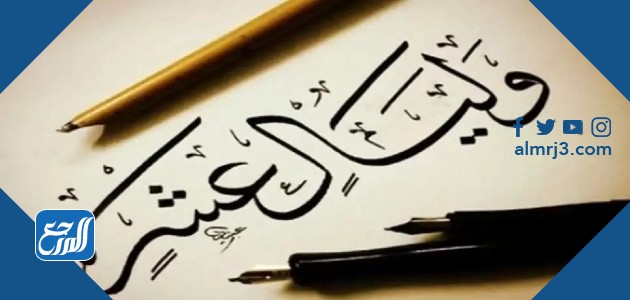 وَلَيَالٍ عَشْرٍ
almrj3.com
المرجع